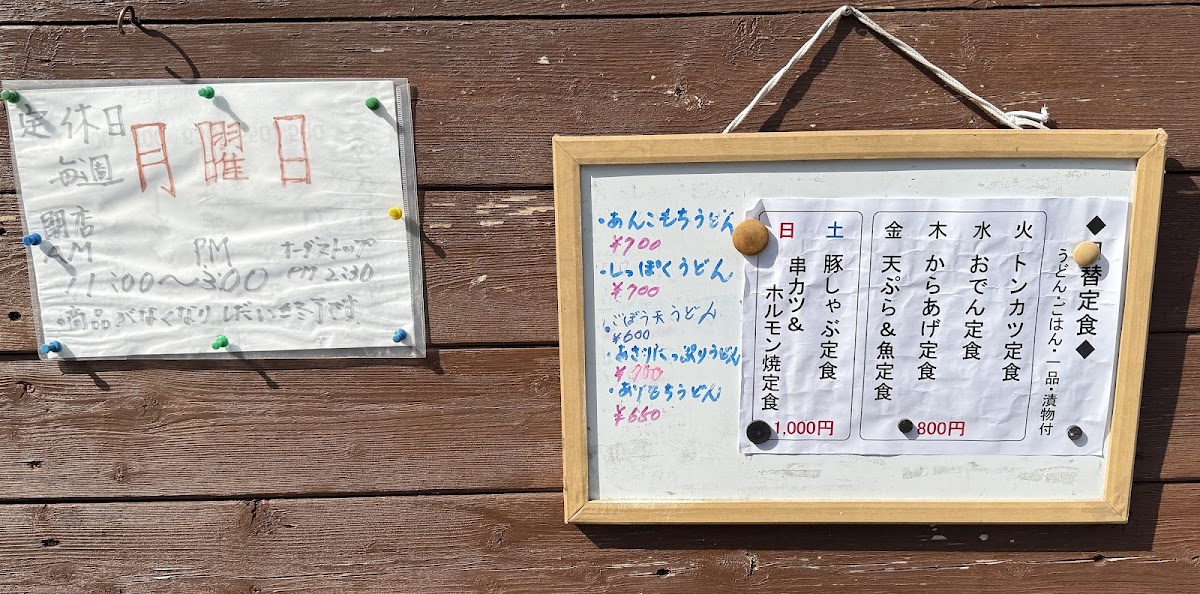 定休日
毎週 月曜日
開店
AM PM オーダーストップ
11:00〜3:00 PM 2:30
・商品がなくなりしだい終了です
・あんこもちうどん
¥700
・しっぽくうどん
¥700
・ごぼう天うどん
¥600
・あさりたっぷりうどん
¥700
・あげもちうどん
¥650
替定食◆
うどん・ごはん・一品・漬物付
火 トンカツ定食
水 おでん定食
木 からあげ定食
金 天ぷら&魚定食
800円
土 豚しゃぶ定食
日 串カツ&
ホルモン焼定食
1,000円